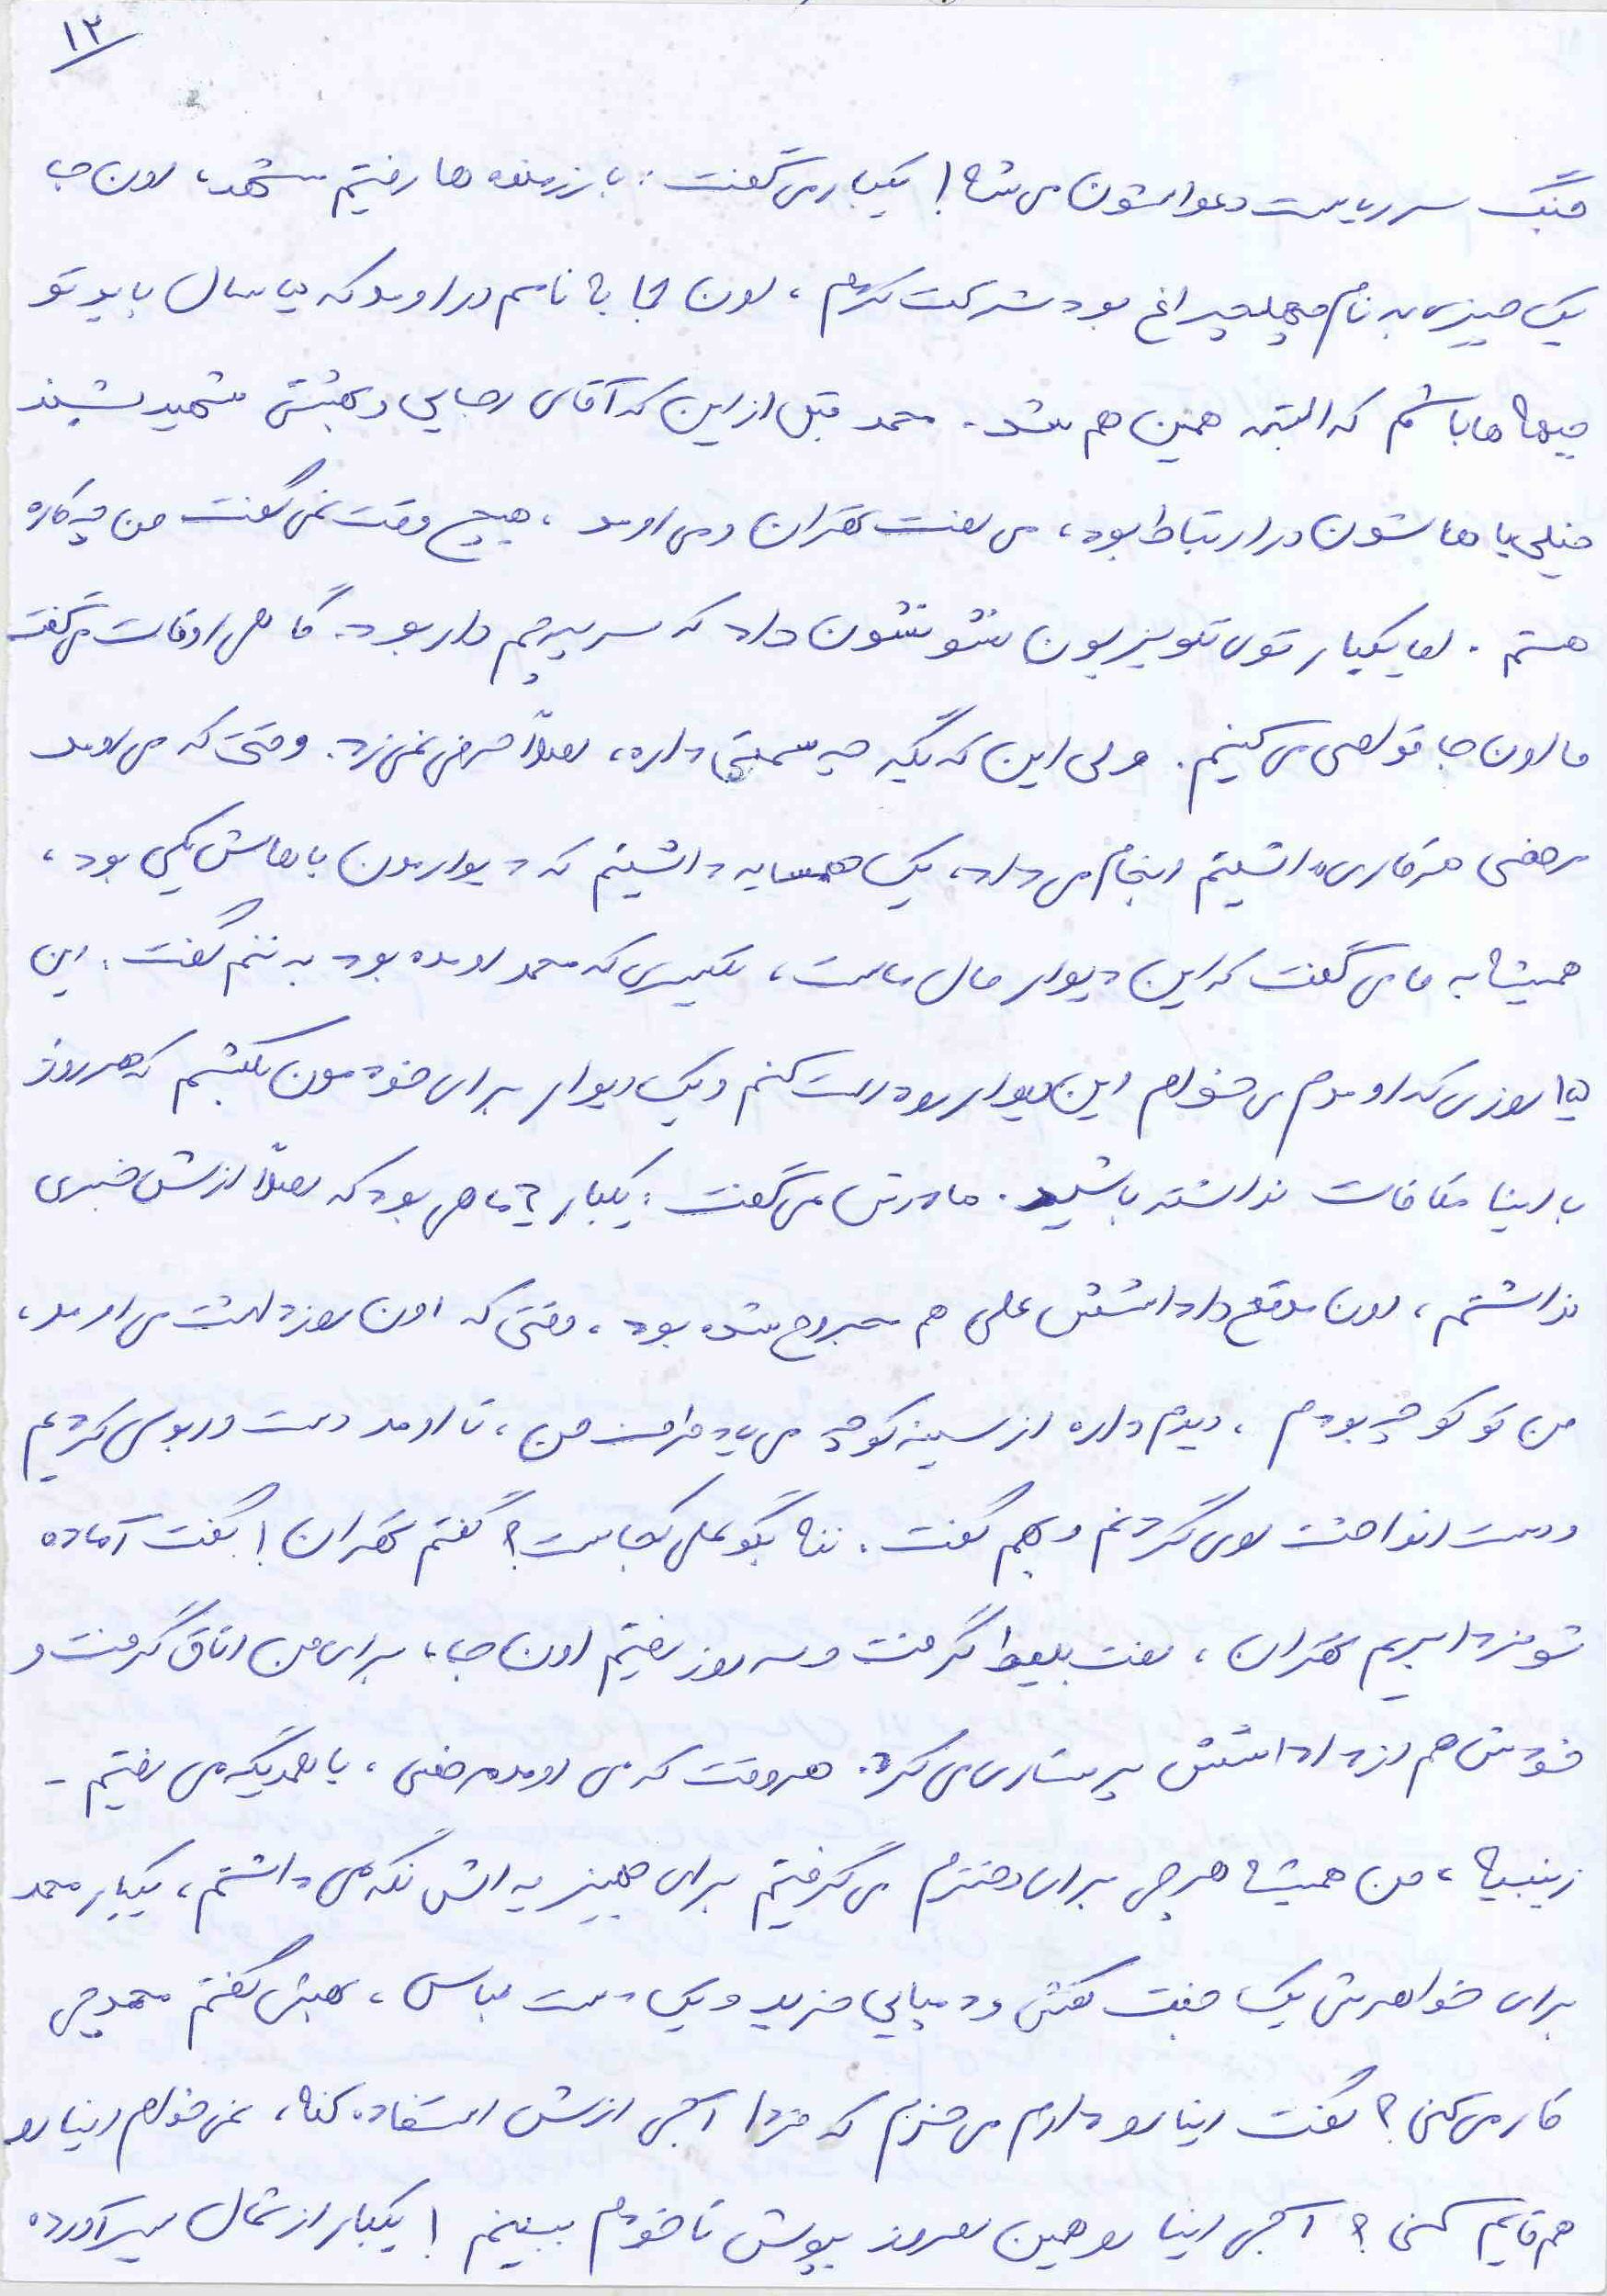 ۱۲
جنگ سر ریاست دعواشون می شه! یکبار می گفت: با رزمنده ها رفتیم مشهد، اون جا
یک چیزی به نام چهلچراغ بود شرکت کردم، اون جا به نامم در اومد که سال باید تو
جبهه ها باشم که البته همین هم شد. محمد قبل از این که آقای رجایی و بهشتی شهید بشند
خیلی باهاشون در ارتباط بود، می رفت تهران و می اومد، هیچ وقت نمی گفت من چه کاره
هستم. اما یکبار توی تلویزیون نشونشون داد که سر پرچم دار بود. گاهی اوقات می گفت
ما اون جا قواصی می کنیم. ولی این که بگه چه سمتی داره، اصلاً حرفی نمی زد. وقتی که می اومد
مرخصی هر کاری داشتیم انجام می داد، یک همسایه داشتیم که دیوارمون باهاش یکی بود،
همیشه به ما می گفت که این دیوار مال ماست، یکسری که محمد اومده بود به ننم گفت: این
۱۵ روزی که اومدم می خوام این دیوار رو درست کنم و یک دیوار برای خودمون بکشم که هر روز
با اینا مکافات نداشته باشید. مادرش می گفت: یکبار ۲ ماهی بود که اصلاً ازش خبری
نداشتم، اون موقع داداشش علی هم مجروح شده بود، وقتی که اون روز داشت می اومد،
من تو کوچه بودم، دیدم داره از سینه کوچه می یاد طرف من، تا اومد دست و روبوسی کردیم
و دست انداخت روی گردنم و بهم گفت. ننه بگو علی کجاست؟ گفتم تهران! گفت آماده
شو فردا بریم تهران، رفت بلیط گرفت و سه روز رفتیم اون جا، برای من اتاق گرفت و
خودش هم از داداشش پرستاری می کرد. هروقت که می اومد مرخصی، با همدیگه می رفتیم -
زینبیه، من همیشه هرچی برای دخترم می گرفتم برای جهیزیه اش نگه می داشتم، یکبار محمد
برای خواهرش یک جفت کفش و دمپایی خرید و یک دست لباس، بهش گفتم محمد چی
کار می کنی؟ گفت اینا رو دارم می خرم که فردا آبجی ازش استفاده کنه، نمی خوام اینا رو
هم قایم کنی؟ آبجی اینا رو همین امروز بپوش تا خودم ببینم! یکبار از شمال سیر آورده